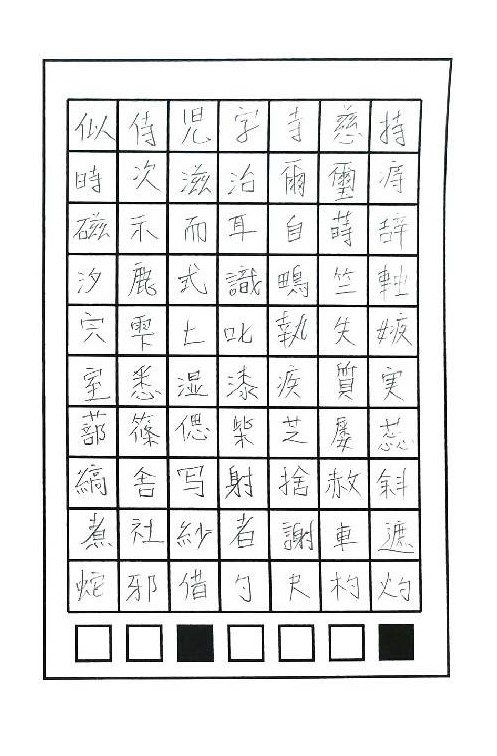 似侍児字寺慈持
時次滋治爾璽痔
磁示而耳自蒔辞
汐鹿式識鴫竺軸
宍雫七叱執失嫉
室悉湿漆疾質実
蔀篠偲柴芝屡蕊
縞舎写射捨赦斜
煮社紗者謝車遮
蛇邪借勺尺杓灼